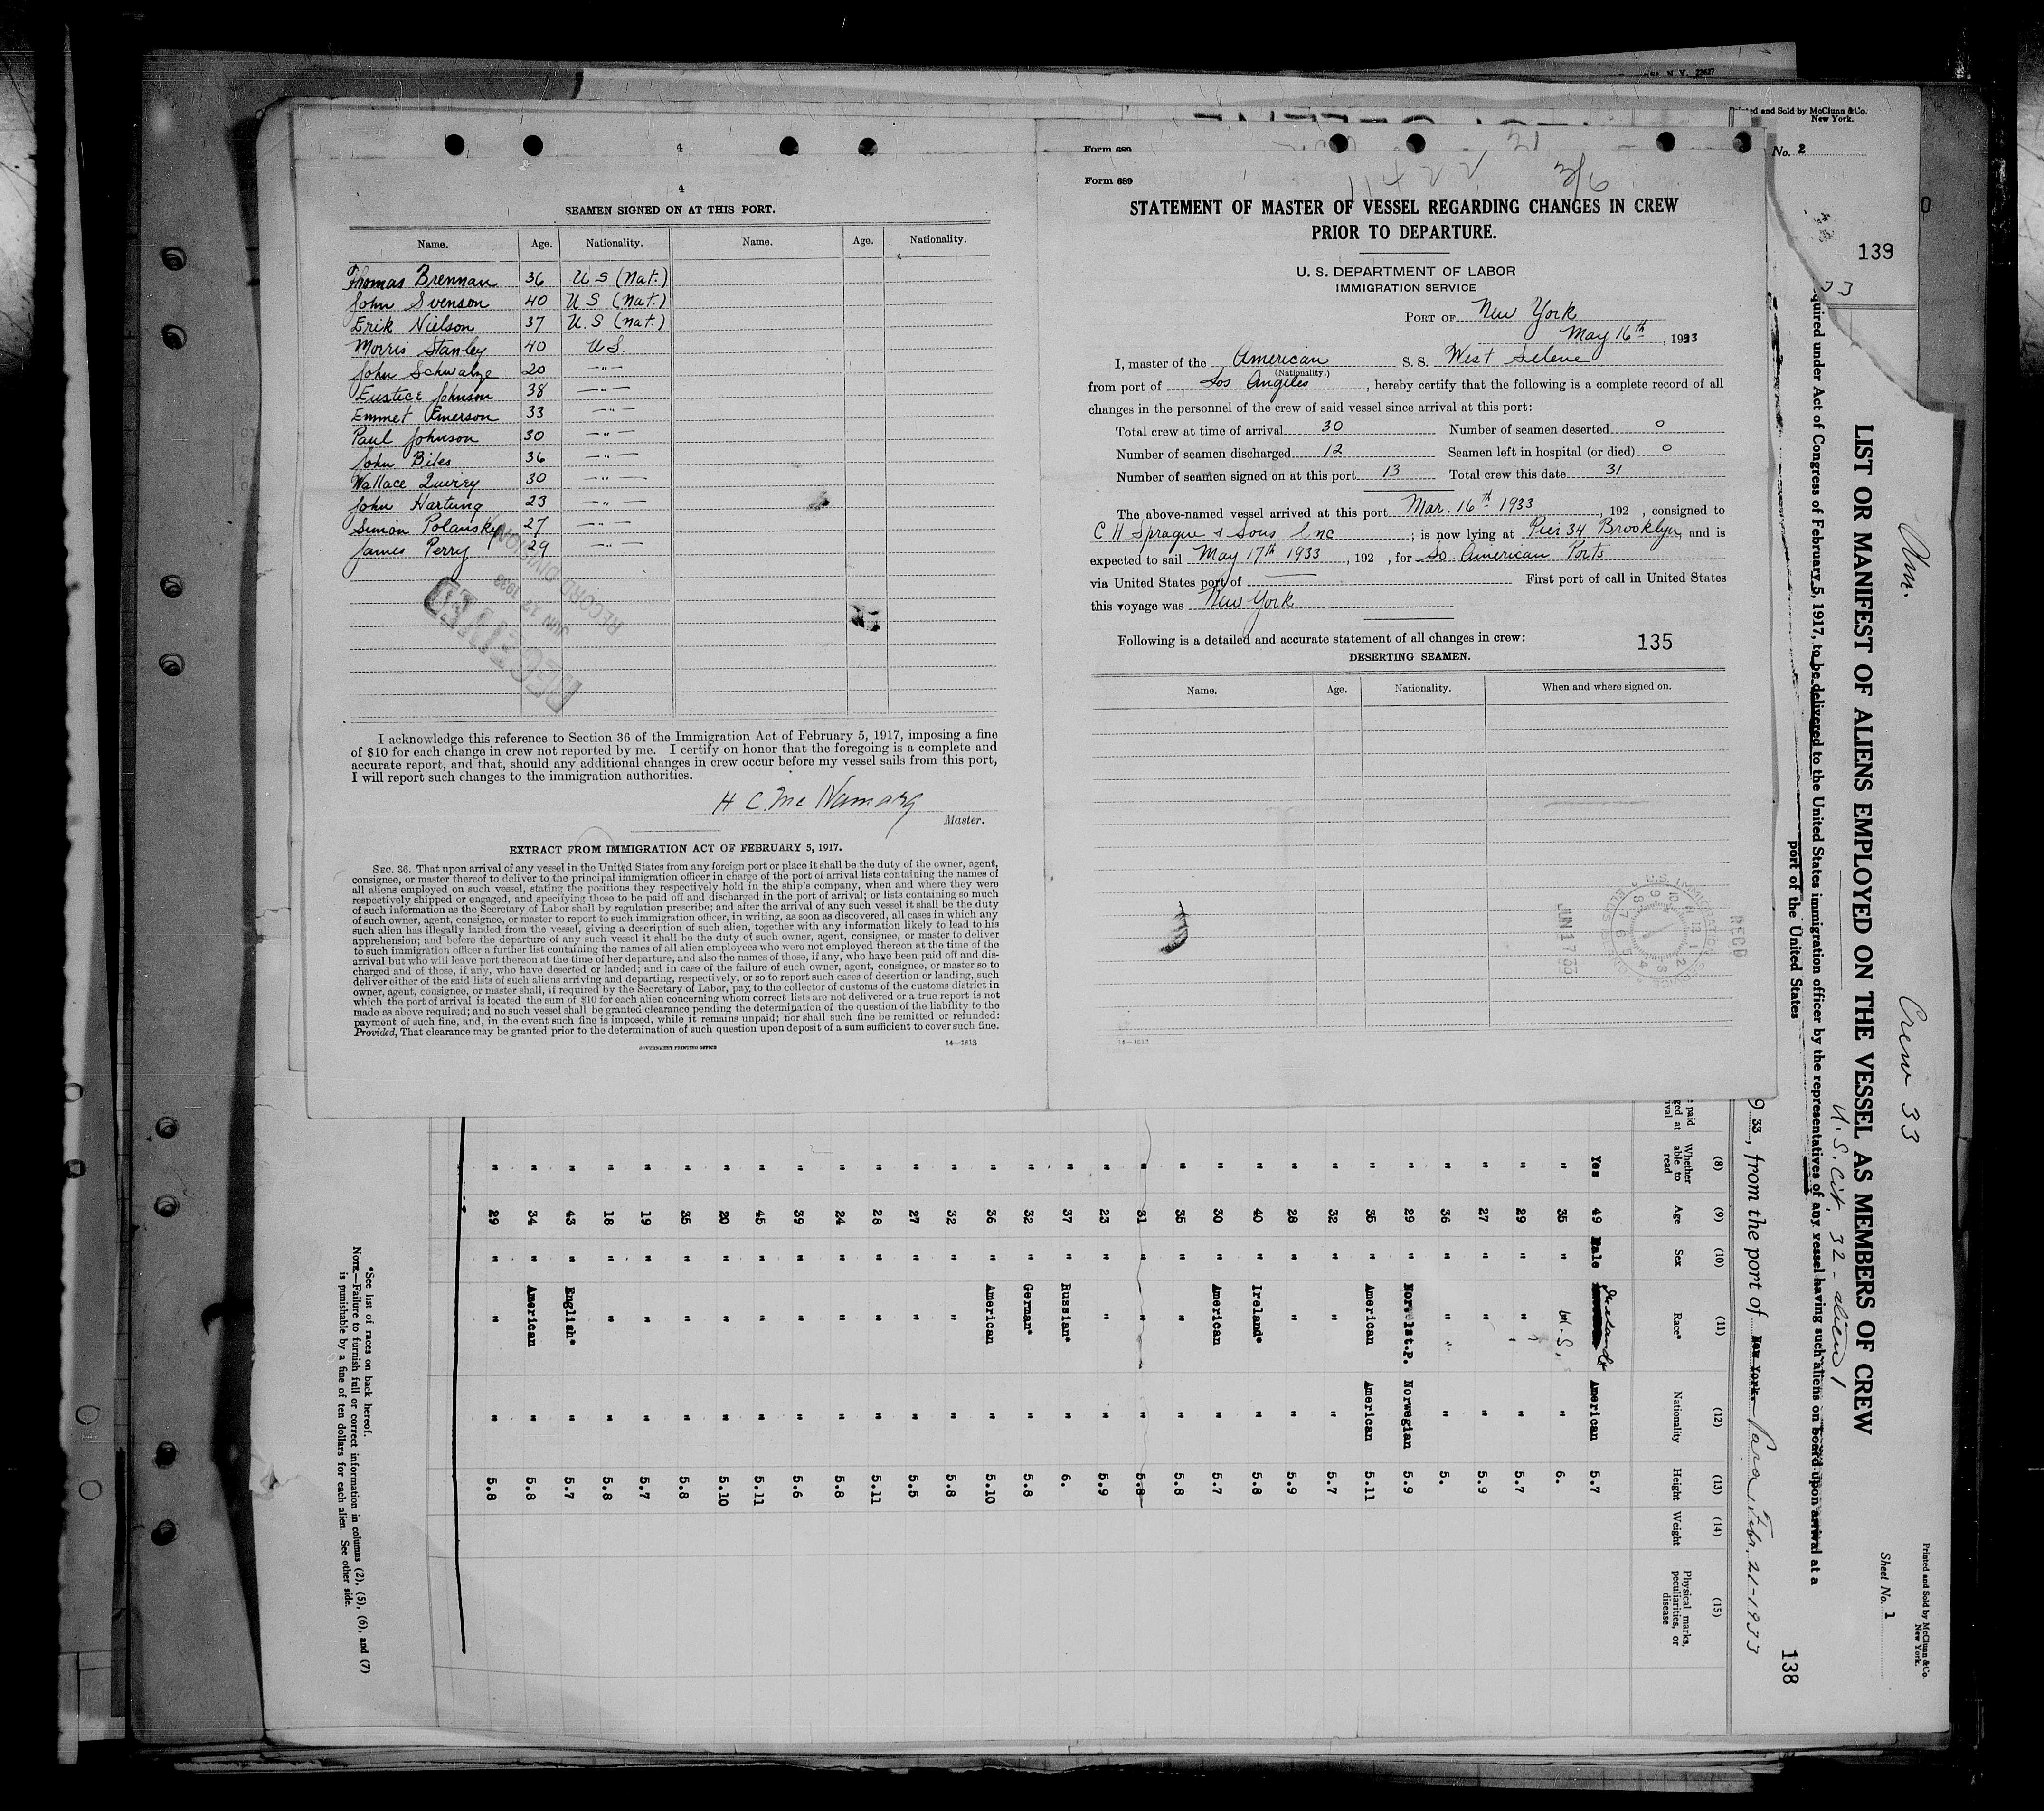 4
4
SEAMEN SIGNED ON AT THIS PORT.
Name. Age. Nationality. Name. Age. Nationality.
Thomas Brennan 36 U S (Nat.)
John Svenson 40 U S (Nat.)
Erik Nielson 37 U.S (Nat.)
Morris Stanley 40 U S.
John Schwalze 20 —"—
Eustice Johnson 38 —"—
Emmet Emerson 33 —"—
Paul Johnson 30 —"—
John Biles 36 —"—
Wallace Quirry 30 —"—
John Hartung 23 —"—
Simon Polansky 27 —"—
James Perry 29 —"—
RECEIVED
JUN 17 1933
RECORD DIVISION
I acknowledge this reference to Section 36 of the Immigration Act of February 5, 1917, imposing a fine
of $10 for each change in crew not reported by me. I certify on honor that the foregoing is a complete and
accurate report, and that, should any additional changes in crew occur before my vessel sails from this port,
I will report such changes to the immigration authorities.
H C. McNamara
Master.
EXTRACT FROM IMMIGRATION ACT OF FEBRUARY 5, 1917.
SEC. 36. That upon arrival of any vessel in the United States from any foreign port or place it shall be the duty of the owner, agent,
consignee, or master thereof to deliver to the principal immigration officer in charge of the port of arrival lists containing the names of
all aliens employed on such vessel, stating the positions they respectively hold in the ship's company, when and where they were
respectively shipped or engaged, and specifying those to be paid off and discharged in the port of arrival; or lists containing so much
of such information as the Secretary of Labor shall by regulation prescribe; and after the arrival of any such vessel it shall be the duty
of such owner, agent, consignee, or master to report to such immigration officer, in writing, as soon as discovered, all cases in which any
such alien has illegally landed from the vessel, giving a description of such alien, together with any information likely to lead to his
apprehension; and before the departure of any such vessel it shall be the duty of such owner, agent, consignee, or master to deliver
to such immigration officer a further list containing the names of all alien employees who were not employed thereon at the time of the
arrival but who will leave port thereon at the time of her departure, and also the names of those, if any, who have been paid off and dis-
charged and of those, if any, who have deserted or landed; and in case of the failure of such owner, agent, consignee, or master so to
deliver either of the said lists of such aliens arriving and departing, respectively, or so to report such cases of desertion or landing, such
owner, agent, consignee, or master shall, if required by the Secretary of Labor, pay to the collector of customs of the customs district in
which the port of arrival is located the sum of $10 for each alien concerning whom correct lists are not delivered or a true report is not
made as above required; and no such vessel shall be granted clearance pending the determination of the question of the liability to the
payment of such fine, and, in the event such fine is imposed, while it remains unpaid; nor shall such fine be remitted or refunded:
Provided, That clearance may be granted prior to the determination of such question upon deposit of a sum sufficient to cover such fine.
GOVERNMENT PRINTING OFFICE 14—1613
Form 689
Form 689
STATEMENT OF MASTER OF VESSEL REGARDING CHANGES IN CREW
PRIOR TO DEPARTURE.
U. S. DEPARTMENT OF LABOR
IMMIGRATION SERVICE
PORT OF New York
May 16th, 1933
I, master of the American S. S. West Selene
(Nationality.)
from port of Los Angeles, hereby certify that the following is a complete record of all
changes in the personnel of the crew of said vessel since arrival at this port:
Total crew at time of arrival 30 Number of seamen deserted 0
Number of seamen discharged 12 Seamen left in hospital (or died) 0
Number of seamen signed on at this port 13 Total crew this date 31
The above-named vessel arrived at this port Mar. 16th 1933, 192 , consigned to
C H Sprague & Sons Inc ; is now lying at Pier 34 Brooklyn, and is
expected to sail May 17th 1933, 192 , for So. American Ports
via United States port of —— First port of call in United States
this voyage was New York
Following is a detailed and accurate statement of all changes in crew: 135
DESERTING SEAMEN.
Name. Age. Nationality. When and where signed on.
RECD
JUN 17 33
14—1613
Printed and Sold by McClunn & Co.
New York.
No. 2
139
Am. Crew 33
U.S. Cit. 32 - alien 1
Printed and Sold by McClunn & Co.
New York.
Sheet No. 1
LIST OR MANIFEST OF ALIENS EMPLOYED ON THE VESSEL AS MEMBERS OF CREW
quired under Act of Congress of February 5, 1917, to be delivered to the United States immigration officer by the representatives of any vessel having such aliens on board upon arrival at a
port of the United States
138
933, from the port of New York Para, Febr. 21-1933
(8) (9) (10) (11) (12) (13) (14) (15)
Whether able to read Age Sex Race* Nationality Height Weight Physical marks, peculiarities, or disease
Yes 49 Male Ireland American 5.7
" 35 " U.S. " 6.
" 29 " " " 5.7
" 27 " " " 5.9
" 36 " " " 5.
" 29 " Nor. 1st.P. Norwegian 5.9
" 35 " American American 5.11
" 32 " " " 5.7
" 28 " " " 5.9
" 40 " Ireland* " 5.8
" 30 " American " 5.7
" 35 " " " 5.8
" 31 " " " 5.8
" 23 " " " 5.9
" 37 " Russian* " 6.
" 32 " German* " 5.8
" 36 " American " 5.10
" 32 " " " 5.8
" 27 " " " 5.5
" 28 " " " 5.11
" 24 " " " 5.8
" 39 " " " 5.6
" 45 " " " 5.11
" 20 " " " 5.10
" 35 " " " 5.8
" 19 " " " 5.7
" 18 " " " 5.8
" 43 " English* " 5.7
" 34 " American " 5.8
" 29 " " " 5.8
*See list of races on back hereof.
NOTE.—Failure to furnish full or correct information in columns (2), (5), (6), and (7)
is punishable by a fine of ten dollars for each alien. See other side.